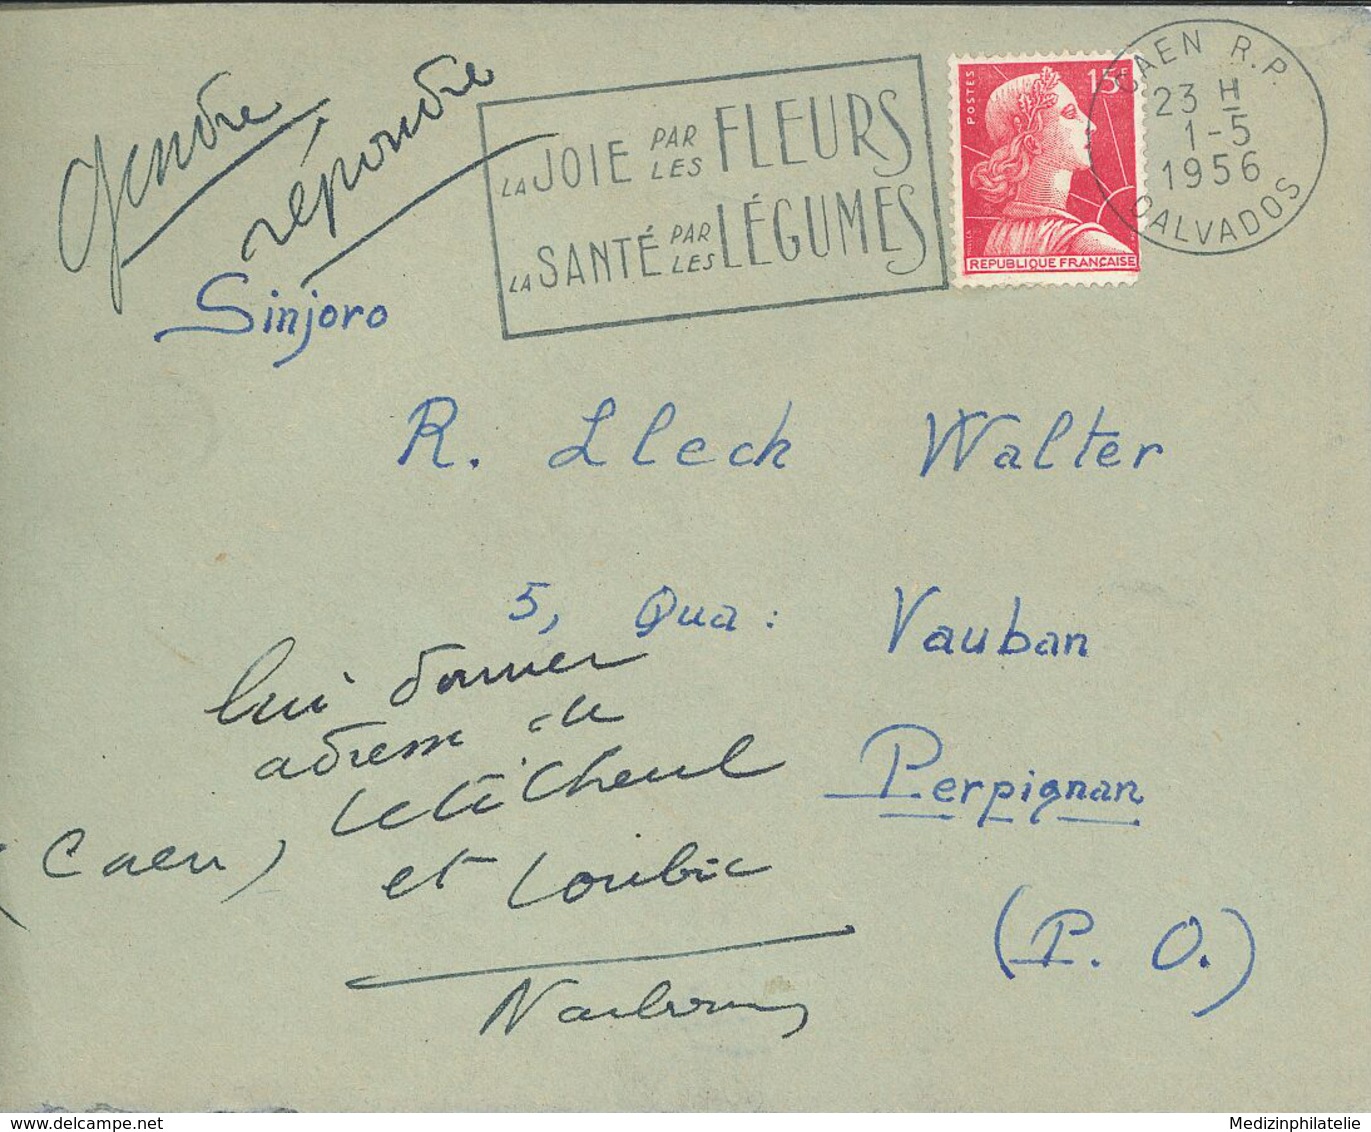 Gendre
répondre
LA JOIE PAR LES FLEURS
LA SANTÉ PAR LES LÉGUMES
POSTES
15F
RÉPUBLIQUE FRANÇAISE
CAEN R.P.
23 H
1-5
1956
CALVADOS
Sinjoro
R. Lleck Walter
5, Qua: Vauban
Perpignan
(P. O.)
lui donner
adresse de
(Caen)
et Loubic
Narbonne
delcampe.net
Medizinphilatelie